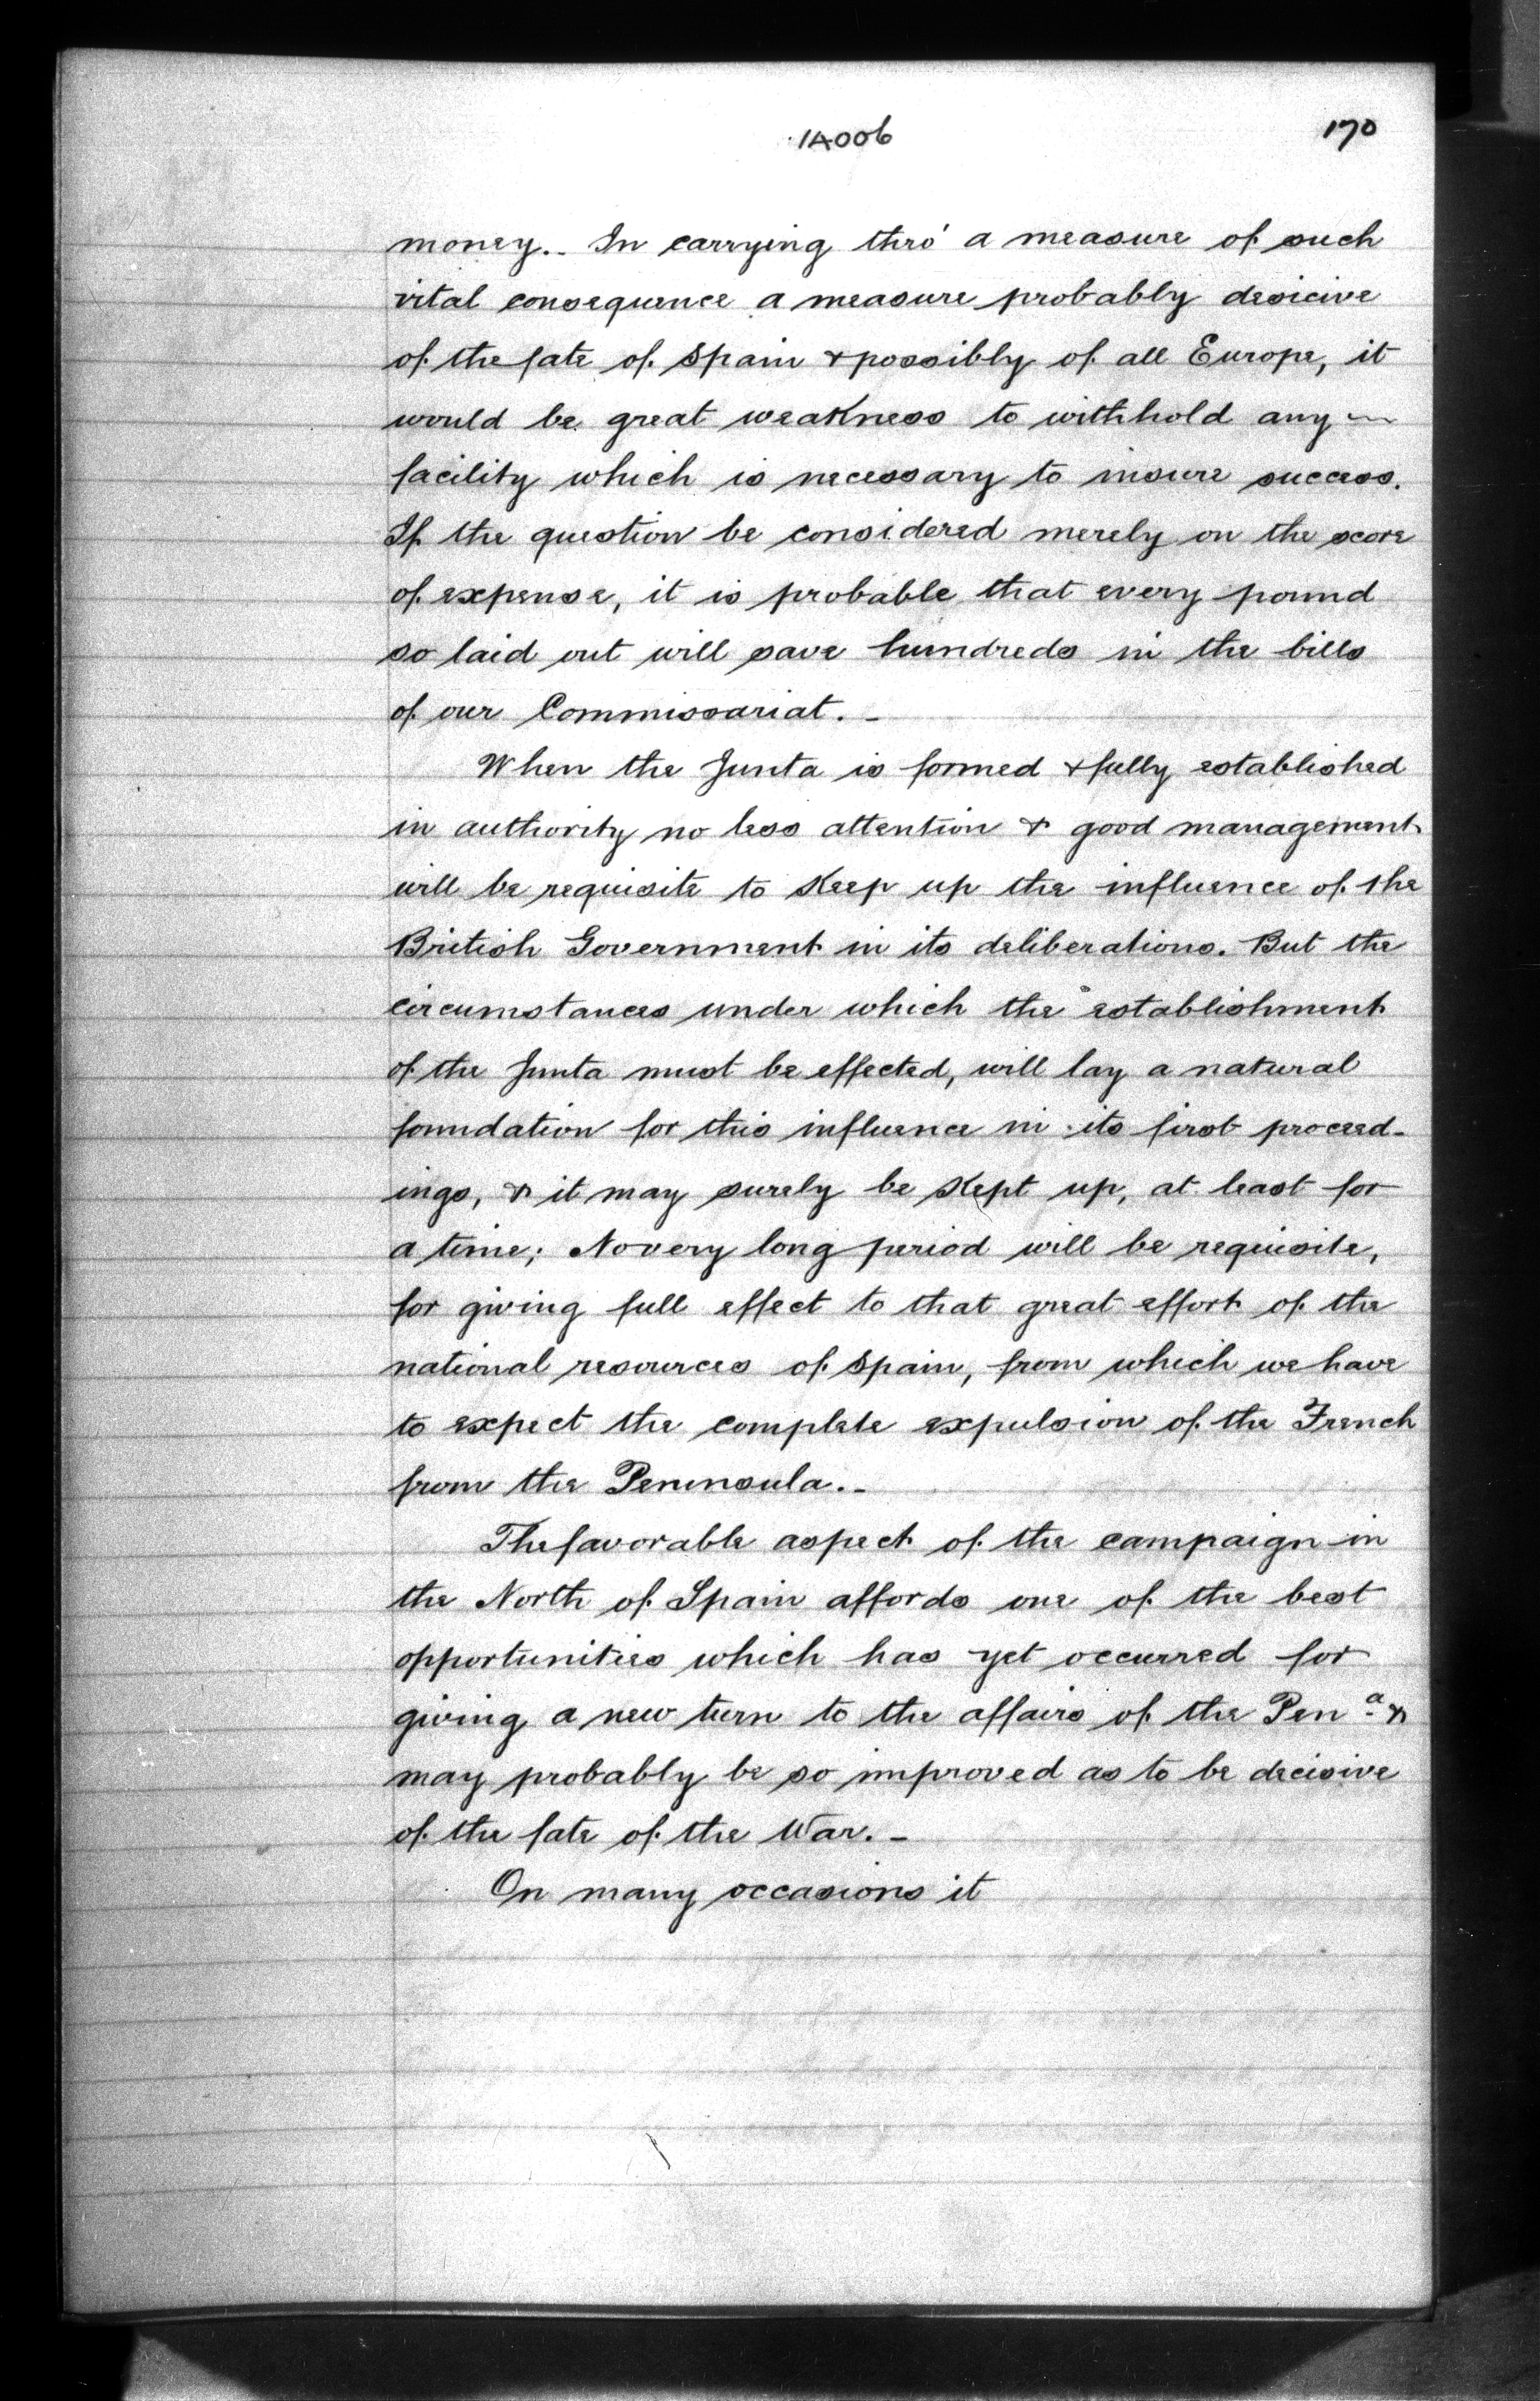 1A006
170
money.- In carrying thro' a measure of such
vital consequence a measure probably desicive
of the fate of Spain & possibly of all Europe, it
would be great weakness to withhold any
facility which is necessary to insure success.
If the question be considered merely on the score
of expense, it is probable that every pound
so laid out will save hundreds in the bills
of our Commissariat. -
When the Junta is formed & fully established
in authority no less attention & good management
will be requisite to keep up the influence of the
British Government in its deliberations. But the
circumstances under which the establishment
of the Junta must be effected, will lay a natural
foundation for this influence in its first proceed-
ings, & it may surely be kept up, at least for
a time; No very long period will be requisite,
for giving full effect to that great effort of the
national resources of Spain, from which we have
to expect the complete expulsion of the French
from the Peninsula.-
The favorable aspect of the campaign in
the North of Spain affords one of the best
opportunities which has yet occurred for
giving a new turn to the affairs of the Pen.a &
may probably be so improved as to be decisive
of the fate of the War. -
On many occasions it